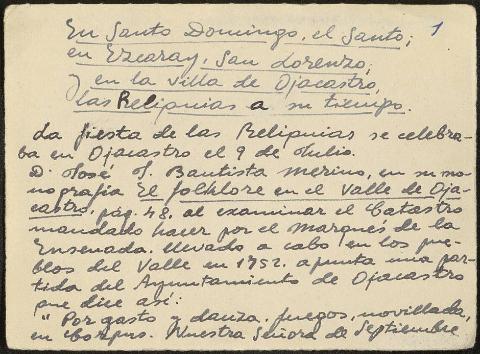 1
En Santo Domingo, el Santo;
en Ezcaray, San Lorenzo;
y en la villa de Ojacastro,
las Reliquias a su tiempo.
La fiesta de las Reliquias se celebra-
ba en Ojacastro el 9 de Julio.
D. José J. Bautista Merino, en su mo-
nografía El folklore en el Valle de Oja-
castro, pág. 48, al examinar el Catastro
mandado hacer por el Marqués de la
Ensenada, llevado a cabo en los pue-
blos del Valle en 1752, apunta una par-
tida del Ayuntamiento de Ojacastro
que dice así:
"Por gasto y danza, juegos, novillada,
en Corpus, Nuestra Señora de Septiembre